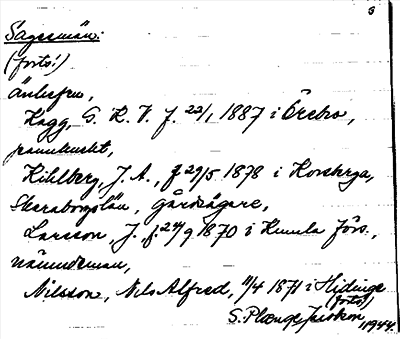 3
Sagesmän:
(forts!)
änkefru,
Hagg, G. K. V. f. 22/1 1887 i Örebro,
Kihlberg, J. A., f 29/5 1878 i Korsberga,
Skaraborgslän, gårdsägare,
Larsson, J. f. 24/9 1870 i Kumla förs.,
nämndeman,
Nilsson, Nils Alfred, 11/4 1871 i Hidinge
(forts)
S. Plænge Jacobson, 1944.